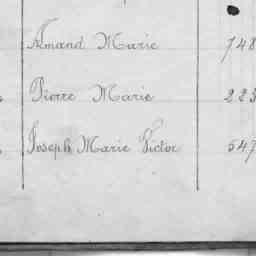 Amand Marie 748
Pierre Marie 223
Joseph Marie Victor 547